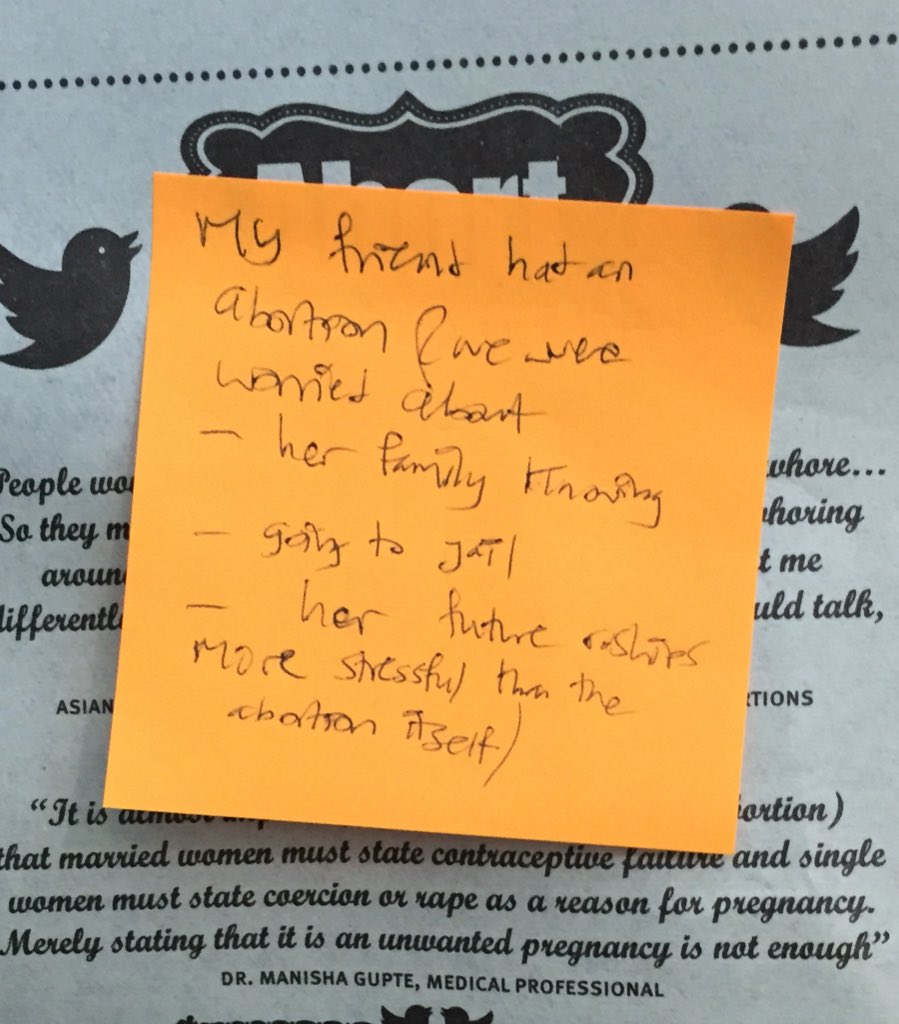 Abort
My friend had an
abortion (we were
worried about
- her family knowing
- going to jail
- her future r-ships
more stressful than the
abortion itself)
People wo whore...
So they m whoring
aroun t me
differentl uld talk,
ASIAN RTIONS
"It is almost ortion)
that married women must state contraceptive failure and single
women must state coercion or rape as a reason for pregnancy.
Merely stating that it is an unwanted pregnancy is not enough"
DR. MANISHA GUPTE, MEDICAL PROFESSIONAL